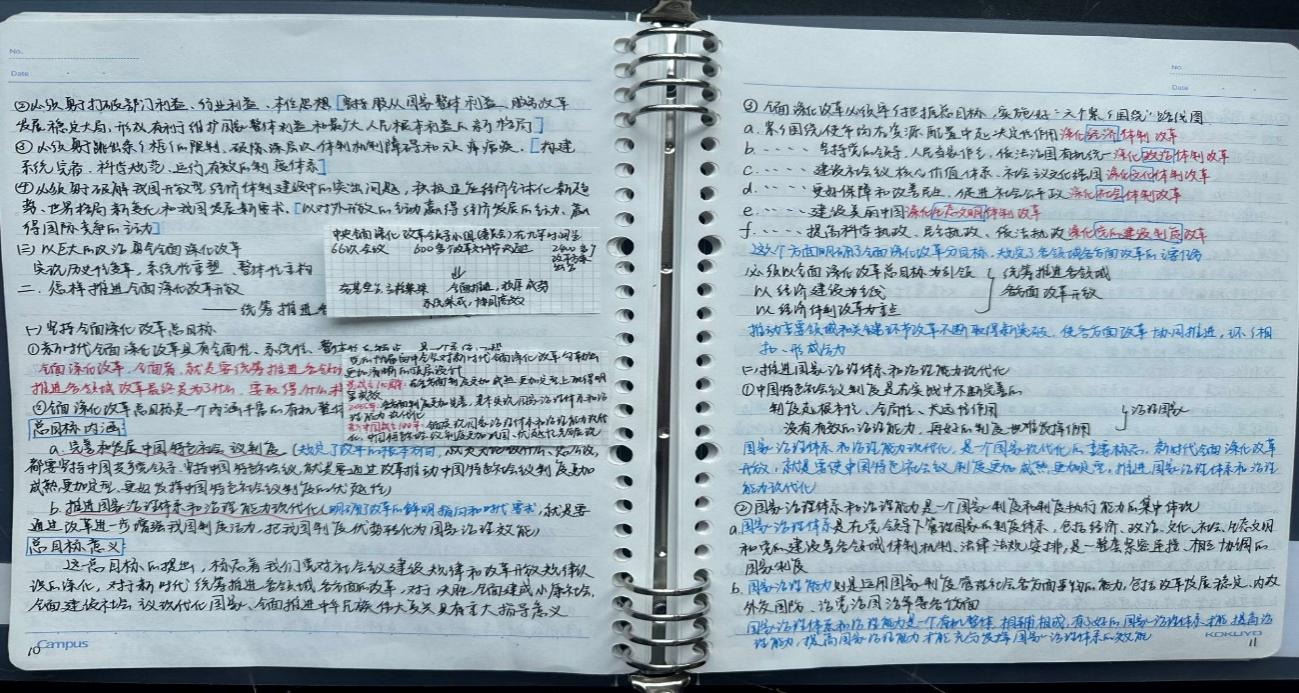 No.
Date
②必须勇于打破部门利益、行业利益、本位思想[坚持服从国家整体利益、服务改革
发展稳定大局,形成有利于维护国家整体利益和最大人民根本利益的新格局]
③必须勇于跳出条条框框的限制,破除深层次体制机制障碍和顽瘴痼疾。[构建
系统完备、科学规范、运行有效的制度体系]
④必须勇于破解我国开放型经济体制建设中的突出问题,积极适应经济全球化新趋
势、世界格局新变化和我国发展新要求。[以对外开放的主动赢得经济发展的主动、赢
得国际竞争的主动]
(三)以巨大的政治勇气全面深化改革
实现历史性变革、系统性重塑、整体性重构
二、怎样推进全面深化改革开放
——统筹推进各
中央全面深化改革领导小组(委员会)
66次会议 600多
2400多个
改革方案
出台
全面推进,
系统集成,协同高效
(一)坚持全面深化改革总目标
①新时代全面深化改革具有全面性、系统性、整体性
全面深化改革,全面者,就是要统筹推进各领域
推进各领域改革最终是为了什么、要取得什么
②全面深化改革总目标是一个内涵丰富的有机整体
党的十八届四中全会对新时代全面深化改革
更加清晰的顶层设计
建党100周年:在各方面制度更加成熟更加定型上取得明
显成效
2035年:各方面制度更加完善,基本实现国家治理体系和治
理能力现代化
新中国成立100年:全面实现国家治理体系和治理能力现代
化,中国特色社会主义制度更加巩固、优越性充分展现
总目标内涵:
a. 完善和发展中国特色社会主义制度(规定了改革的根本方向,
都要坚持中国共产党领导,坚持中国特色社会主义,就是要通过改革推动中国特色社会主义制度更加
成熟更加定型、更好发挥中国特色社会主义制度的优越性)
b. 推进国家治理体系和治理能力现代化(明确了改革的鲜明指向和时代要求,就是要
通过改革进一步增强我国制度活力,把我国制度优势转化为国家治理效能)
总目标意义:
这一总目标的提出,标志着我们党对社会主义建设规律和改革开放规律认
识的深化,对于新时代统筹推进各领域各方面的改革,对于决胜全面建成小康社会,
全面建设社会主义现代化国家、全面推进中华民族伟大复兴具有重大指导意义
10
Campus
No.
Date
③全面深化改革必须牢牢把握总目标,实施好“六个紧紧围绕”路线图
a. 紧紧围绕使市场在资源配置中起决定性作用深化经济体制改革
b. ····· 坚持党的领导、人民当家作主、依法治国有机统一深化政治体制改革
c. ····· 建设社会主义核心价值体系、社会主义文化强国深化文化体制改革
d. ····· 更好保障和改善民生、促进社会公平正义深化社会体制改革
e. ····· 建设美丽中国深化生态文明体制改革
f. ····· 提高科学执政、民主执政、依法执政深化党的建设制度改革
这六个方面明确了全面深化改革分目标,规定了各领域各方面改革的主要任务
必须以全面深化改革总目标为引领
以经济建设为主线
以经济体制改革为重点
统筹推进各领域
各方面改革开放
推动重要领域和关键环节改革不断取得新突破,使各方面改革协同推进,环环相
扣、形成合力
(二)推进国家治理体系和治理能力现代化
①中国特色社会主义制度是在实践中不断完善的
制度起根本性、全局性、长远性作用
没有有效的治理能力,再好的制度也难发挥作用
治理国家
国家治理体系和治理能力现代化,是一个国家现代化的重要标志。新时代全面深化改革
开放,就是要使中国特色社会主义制度更加成熟更加定型,推进国家治理体系和治理
能力现代化
②国家治理体系和治理能力是一个国家制度和制度执行能力的集中体现
a. 国家治理体系是在党领导下管理国家的制度体系,包括经济、政治、文化、社会、生态文明
和党的建设等各领域体制机制、法律法规安排,是一整套紧密连接、相互协调的
国家制度
b. 国家治理能力则是运用国家制度管理社会各方面事务的能力,包括改革发展稳定、内政
外交国防、治党治国治军等各个方面
国家治理体系和治理能力是一个有机整体,相辅相成,有了好的国家治理体系才能提高治
理能力,提高国家治理能力才能充分发挥国家治理体系的效能
KOKUYO
11